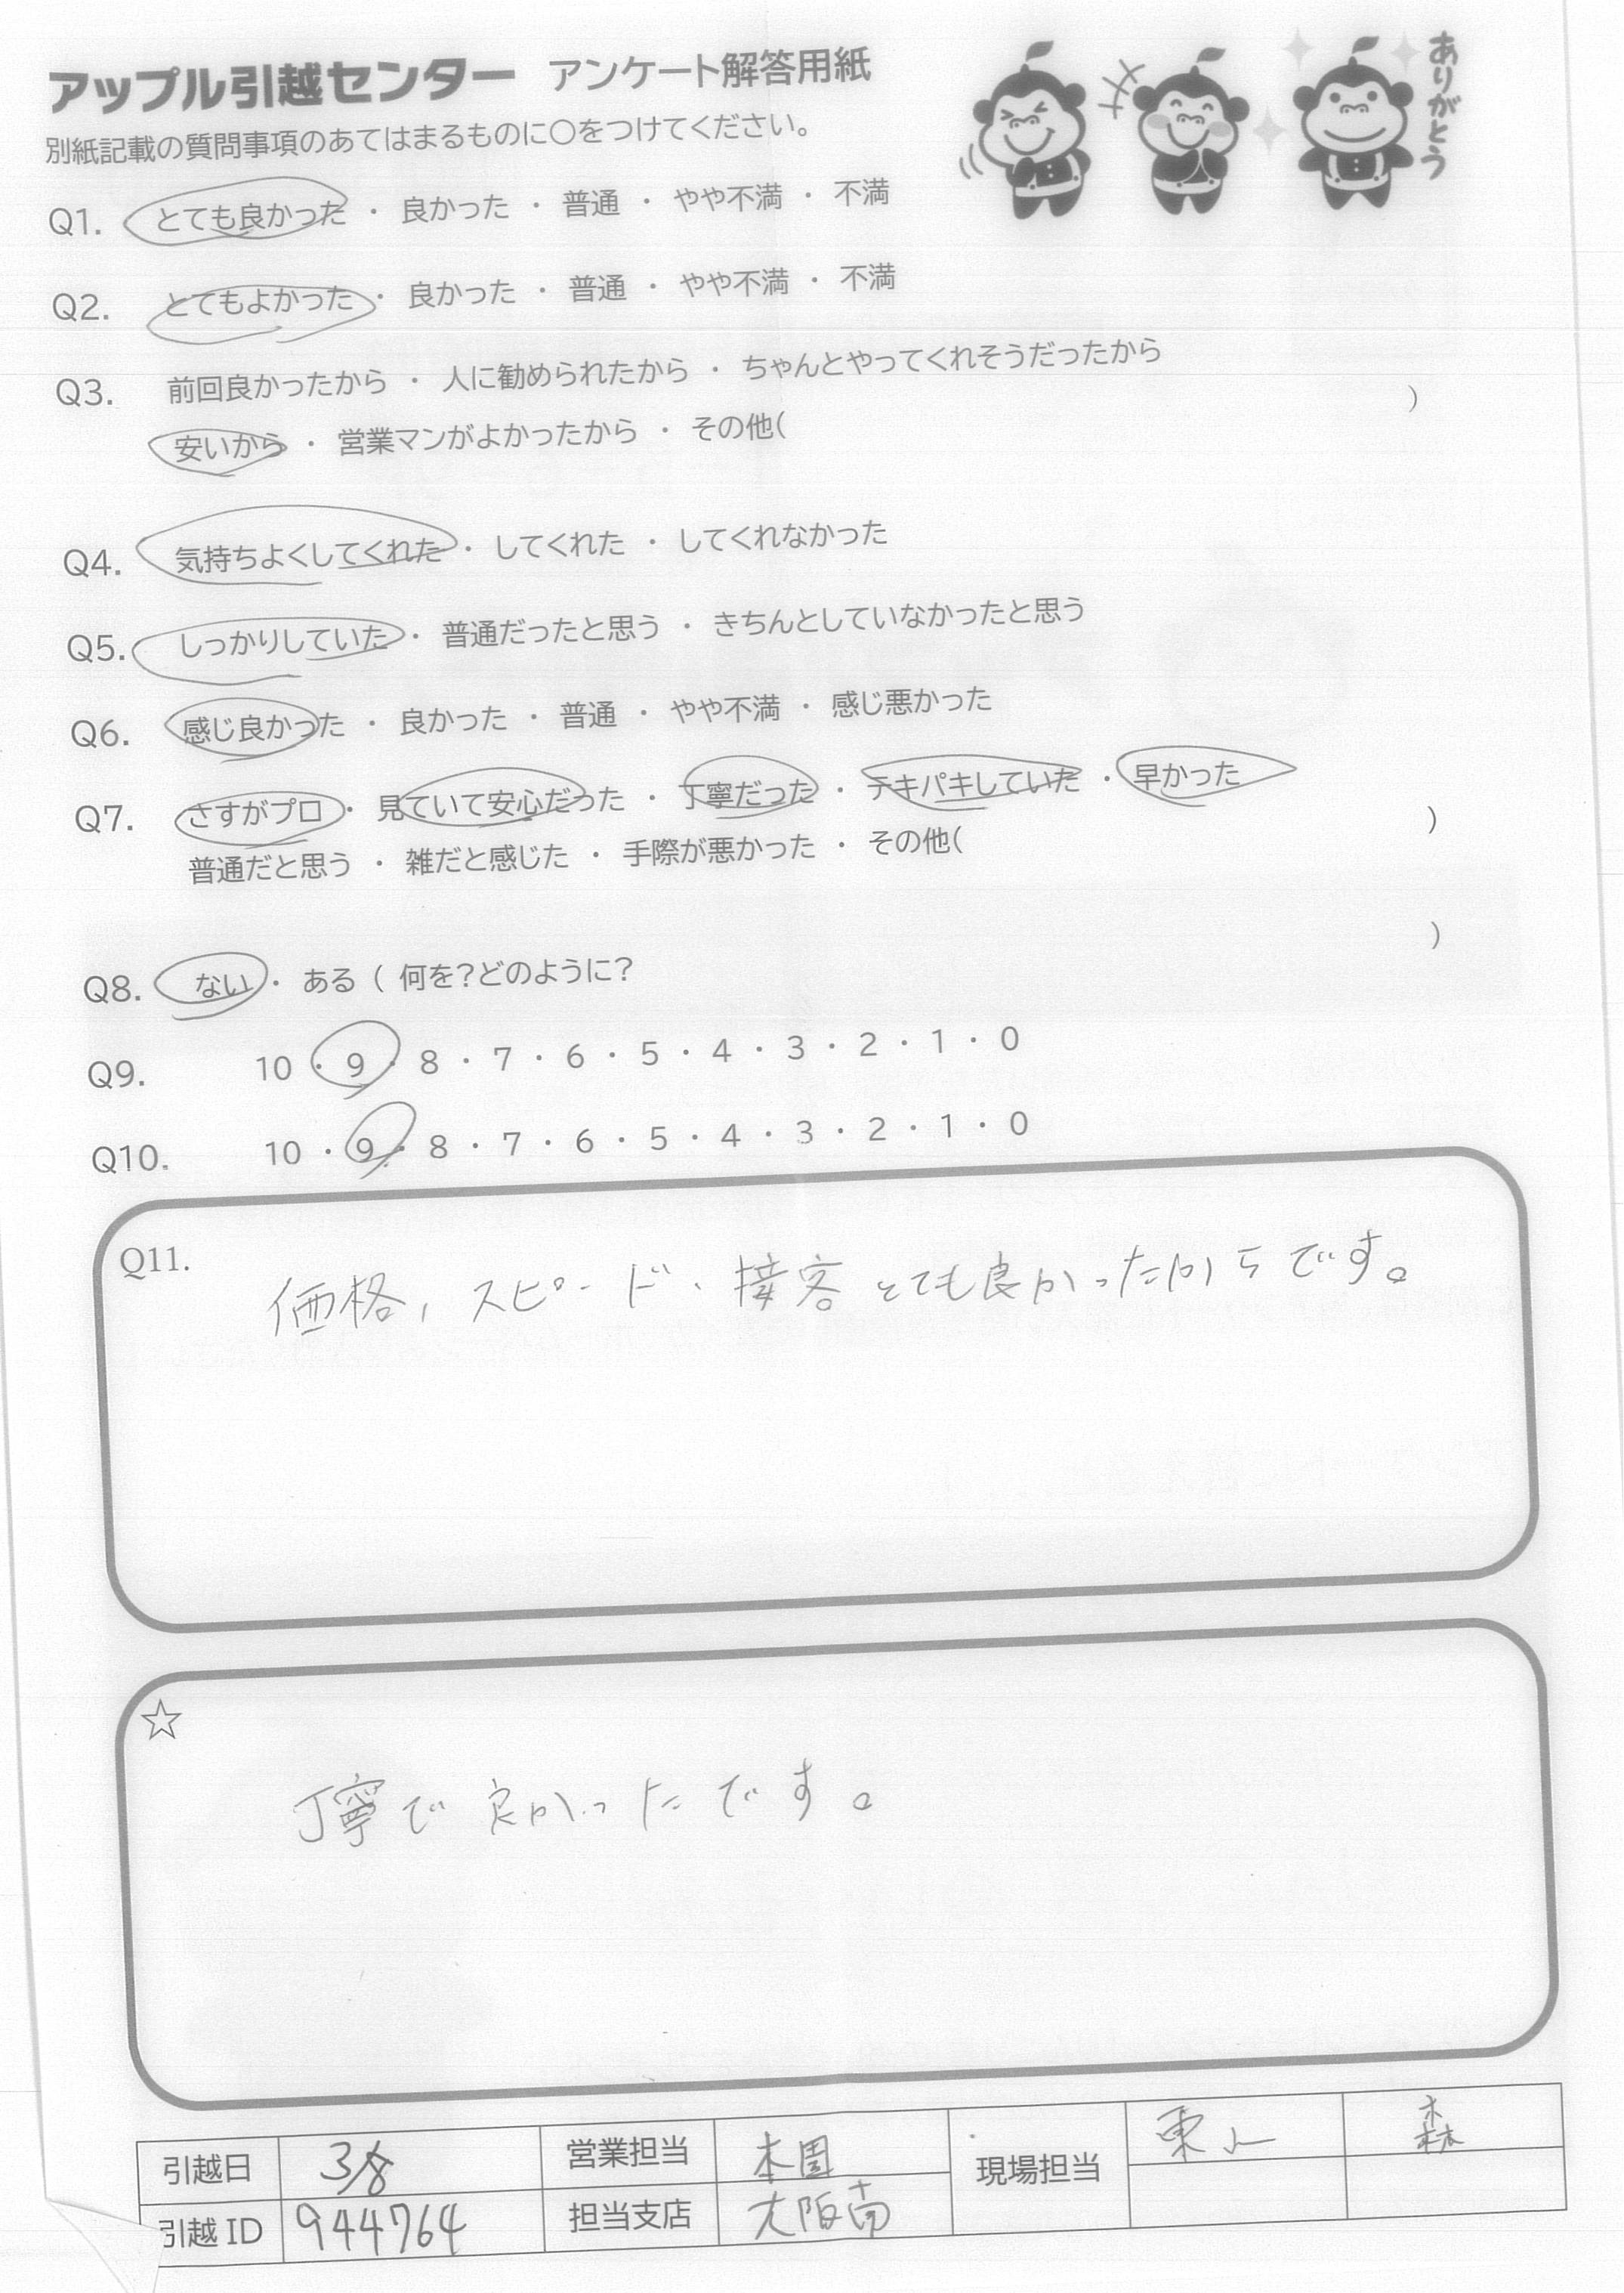 アップル引越センター アンケート解答用紙
ありがとう
別紙記載の質問事項のあてはまるものに○をつけてください。
Q1. とても良かった ・ 良かった ・ 普通 ・ やや不満 ・ 不満
Q2. とてもよかった ・ 良かった ・ 普通 ・ やや不満 ・ 不満
Q3. 前回良かったから ・ 人に勧められたから ・ ちゃんとやってくれそうだったから
安いから ・ 営業マンがよかったから ・ その他( )
Q4. 気持ちよくしてくれた ・ してくれた ・ してくれなかった
Q5. しっかりしていた ・ 普通だったと思う ・ きちんとしていなかったと思う
Q6. 感じ良かった ・ 良かった ・ 普通 ・ やや不満 ・ 感じ悪かった
Q7. さすがプロ ・ 見ていて安心だった ・ 丁寧だった ・ テキパキしていた ・ 早かった
普通だと思う ・ 雑だと感じた ・ 手際が悪かった ・ その他( )
Q8. ない ・ ある ( 何を?どのように? )
Q9. 10 ・ 9 ・ 8 ・ 7 ・ 6 ・ 5 ・ 4 ・ 3 ・ 2 ・ 1 ・ 0
Q10. 10 ・ 9 ・ 8 ・ 7 ・ 6 ・ 5 ・ 4 ・ 3 ・ 2 ・ 1 ・ 0
Q11. 価格、スピード、接客とても良かったからです。
☆
丁寧で良かったです。
引越日 3/8 営業担当 本園 現場担当 東 森
引越ID 944764 担当支店 大阪南